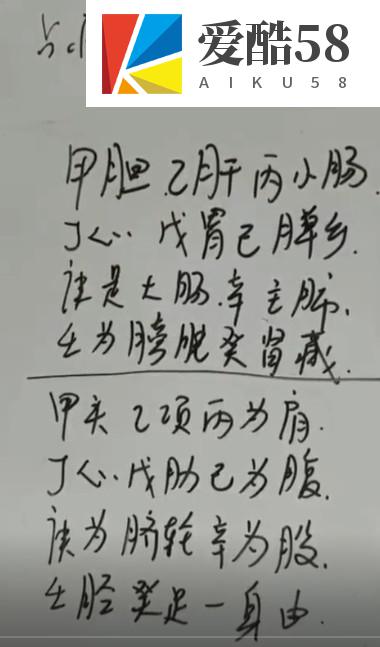 占
爱酷58
AIKU58
甲胆乙肝丙小肠.
丁心.戊胃己脾乡.
庚是大肠.辛主肺.
壬为膀胱癸肾藏.
甲头乙项丙为肩.
丁心.戊肋己为腹.
庚为脐轮辛为股.
壬胫癸足一身由.